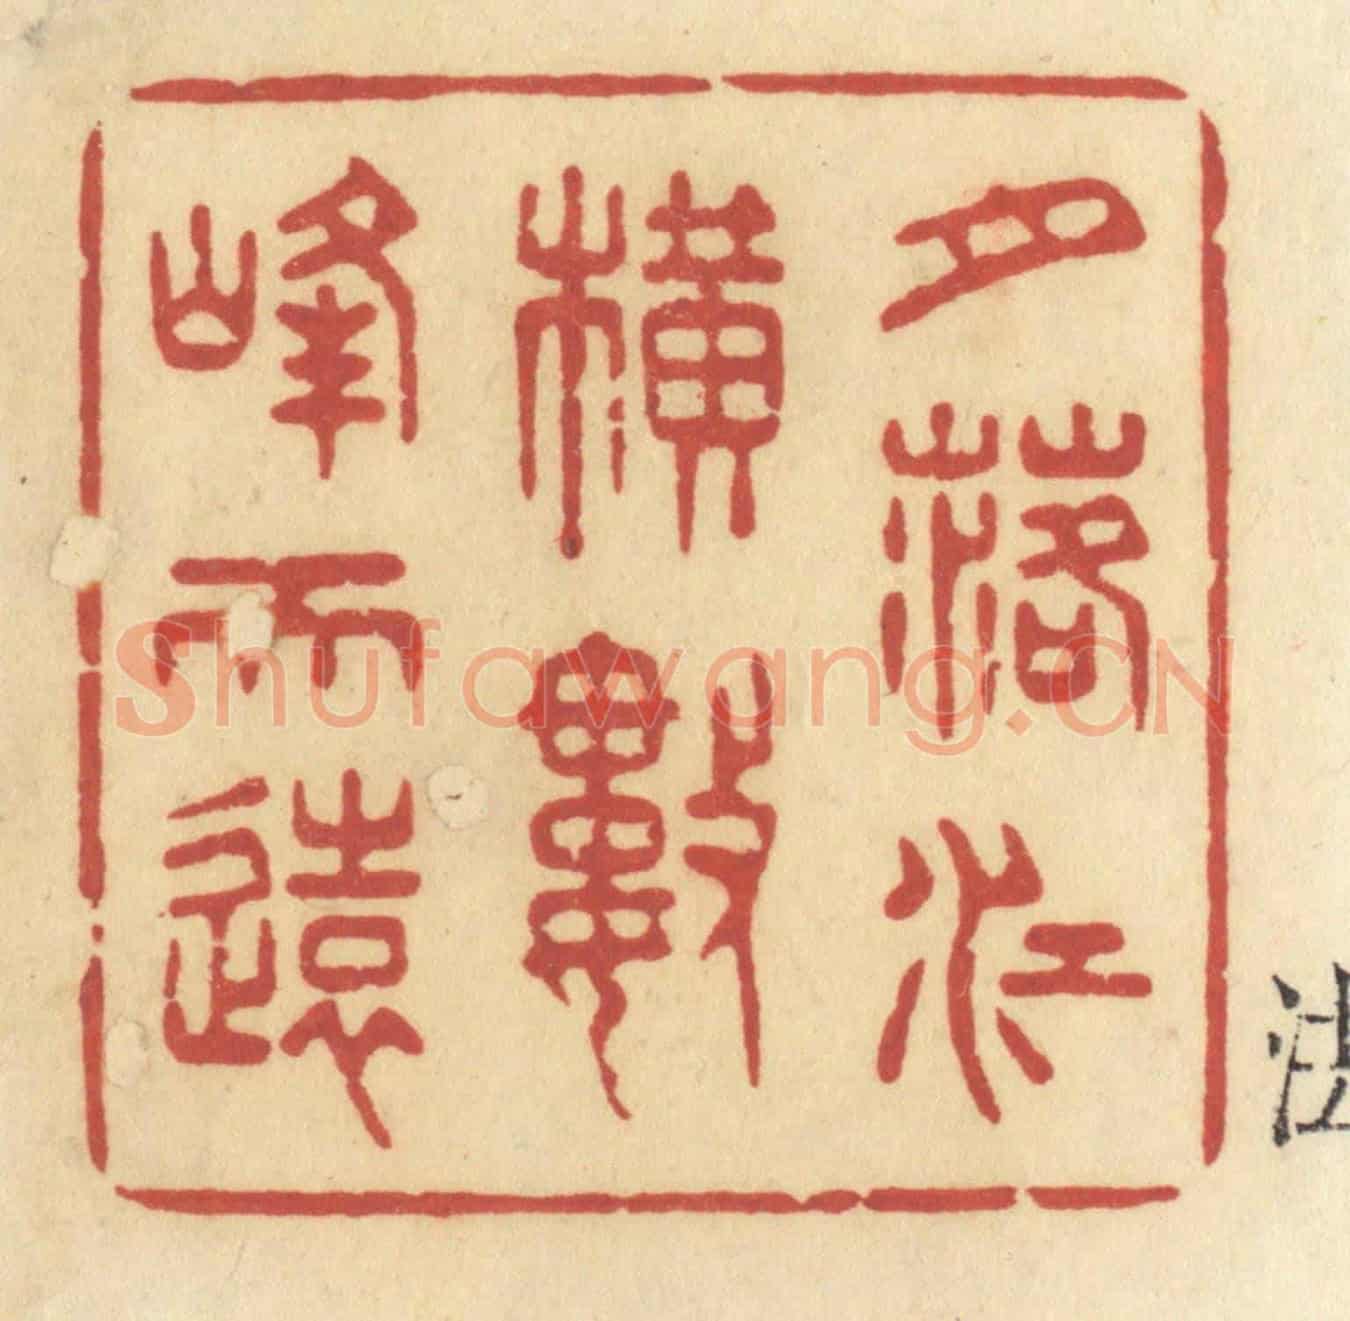 月落江
橫數
峰天遠
Shufawang.CN